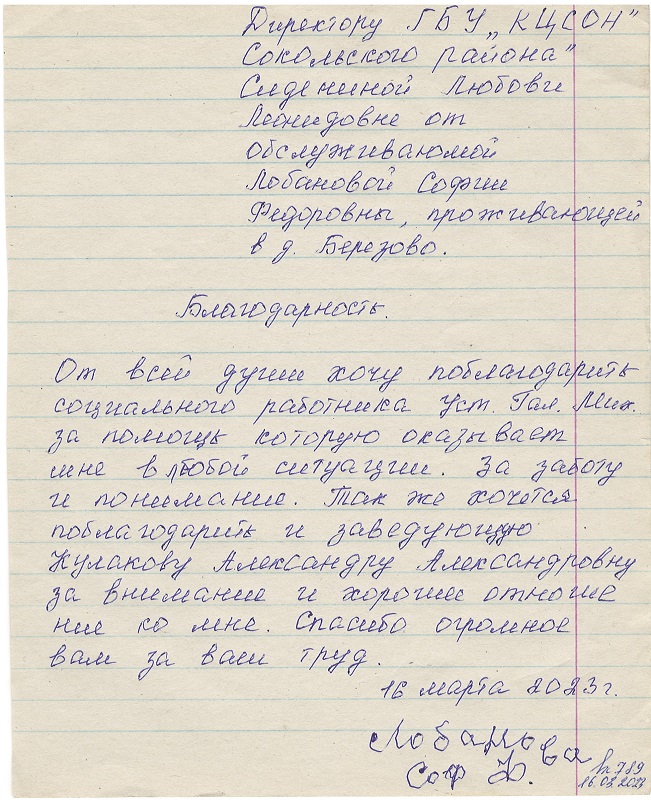 Директору ГБУ „КЦСОН"
Сокольского района"
Сидениной Любовь
Леонидовне от
обслуживаюмой
Лобановой Софии
Федоровны, проживающей
в д. Березово.
Благодарность.
От всей души хочу поблагодарить
социального работника Уст. Гал. Мих.
за помощь которую оказывает
мне в любой ситуации. За заботу
и понимание. Так же хочется
поблагодарить и заведующую
Кулакову Александру Александровну
за внимание и хорошее отноше
ние ко мне. Спасибо огромное
вам за ваш труд.
16 марта 2023 г.
Лобанова
Соф Ф.
Вх 789
16.03.2023